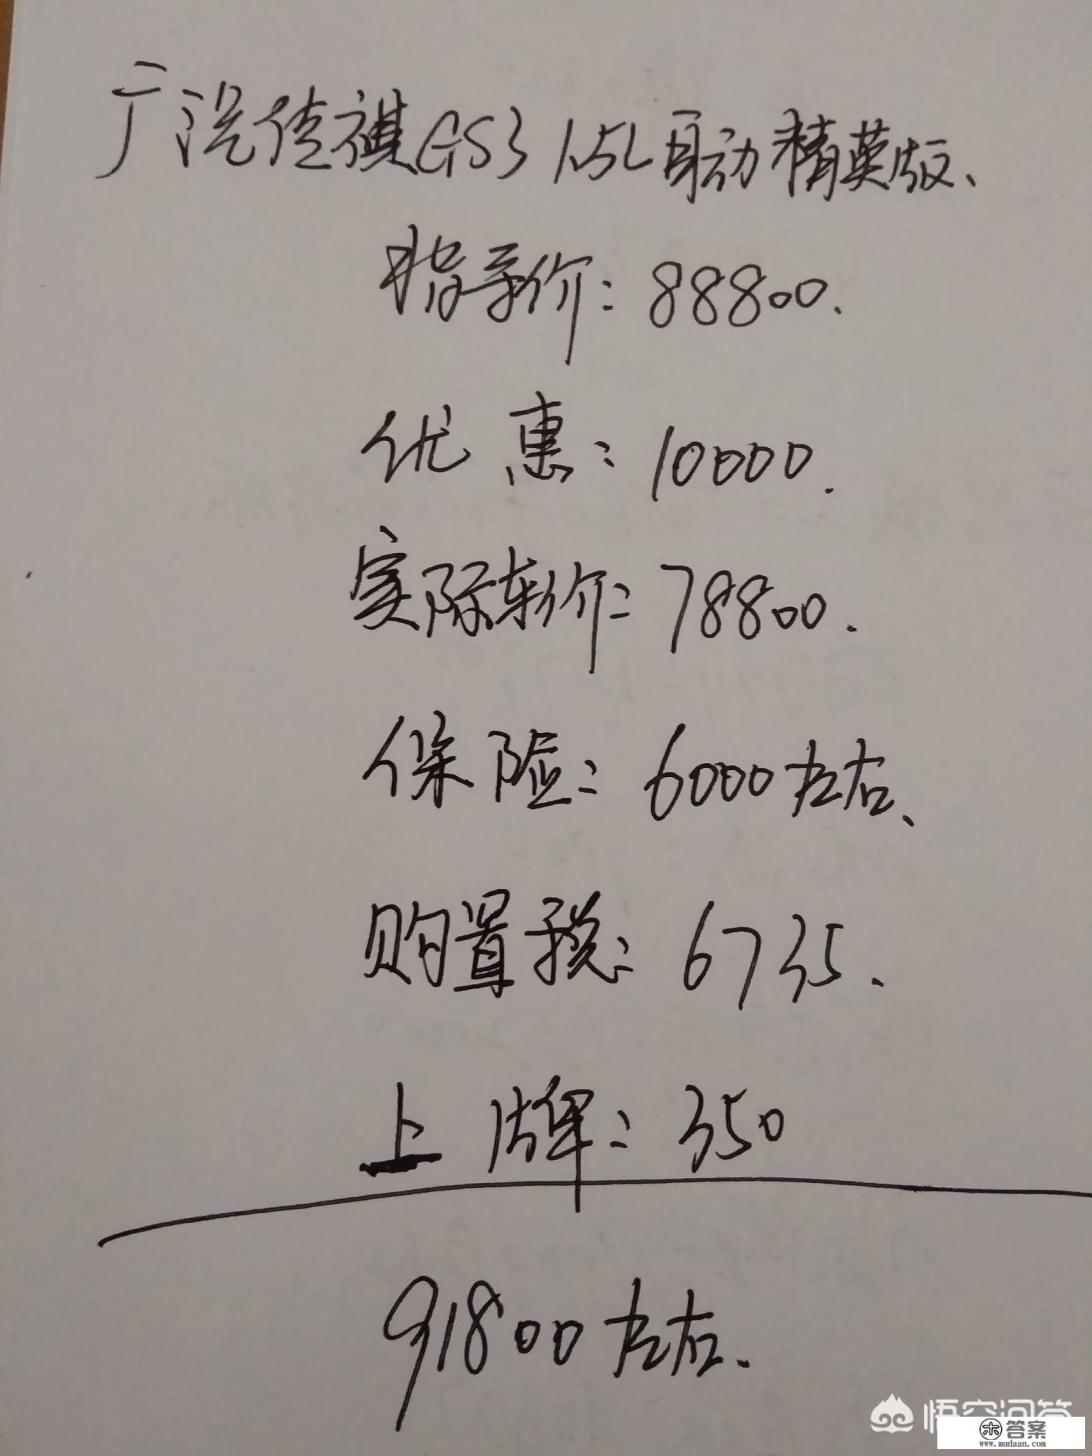 广汽传祺GS3 1.5L自动精英版、
指导价：88800.
优惠：10000.
实际车价：78800.
保险：6000左右、
购置税：6735.
上牌：350
91800左右.
悟空问答
答案
www.mudaan.com